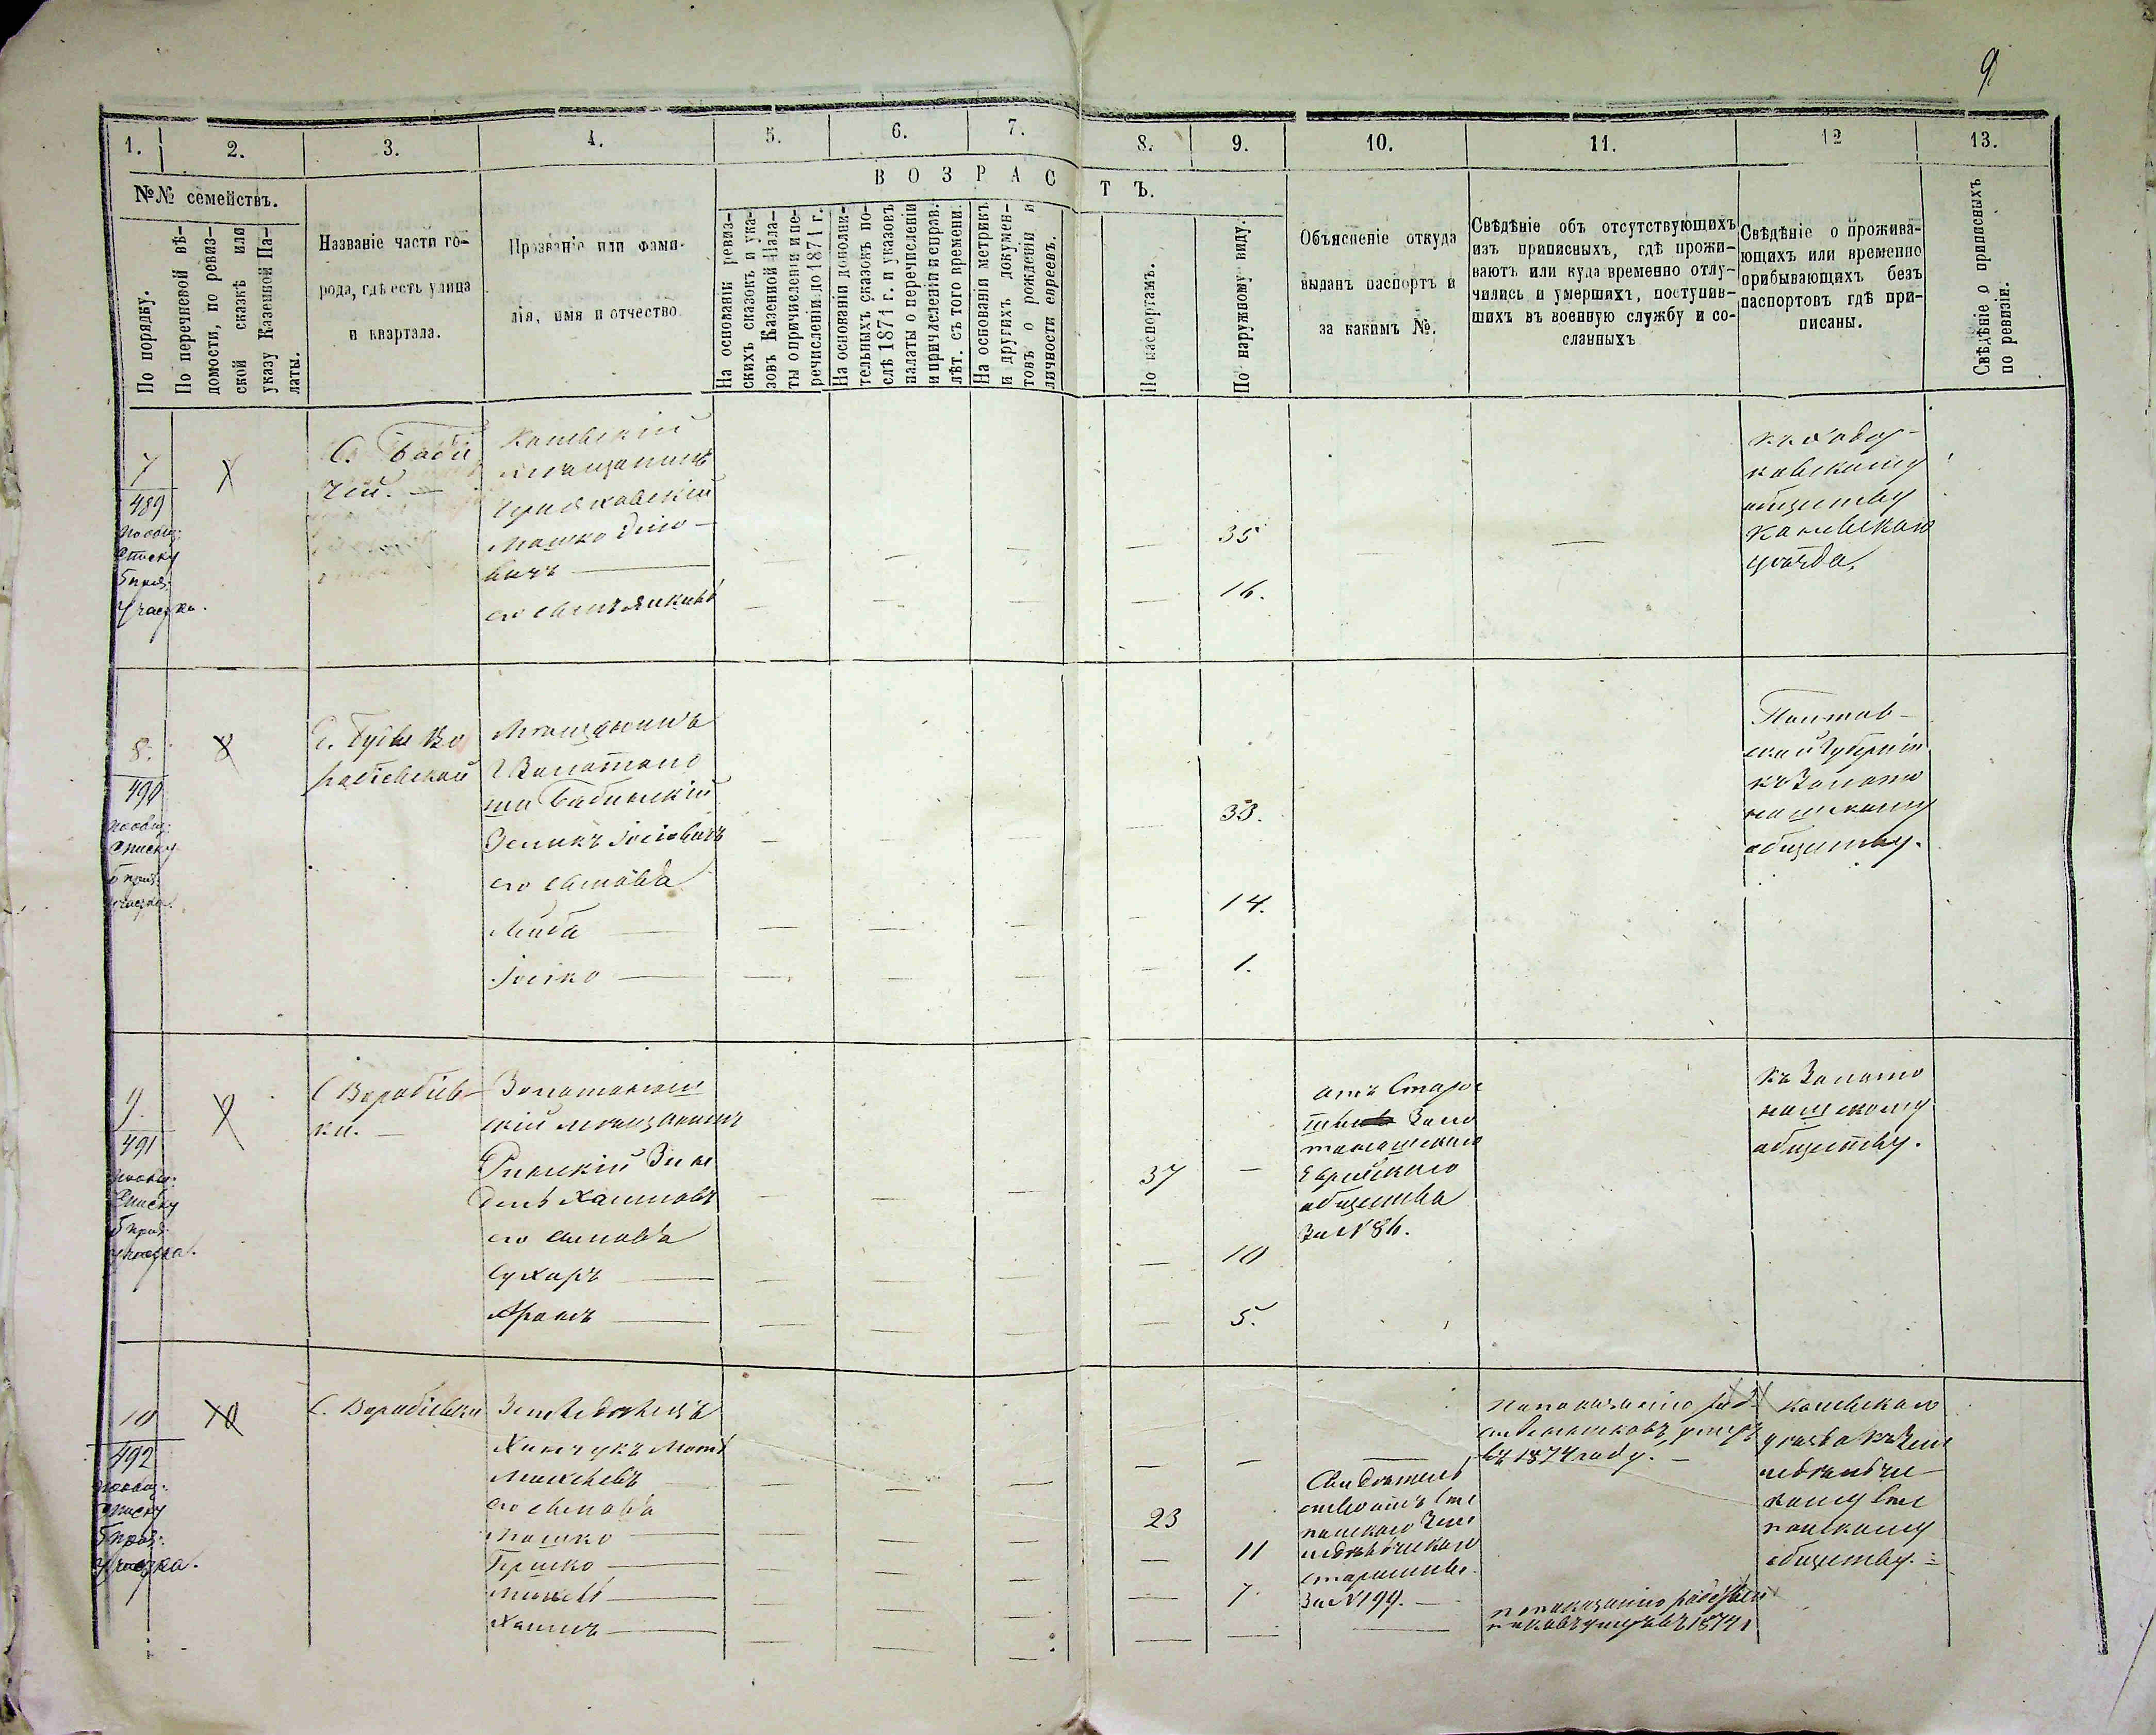 9
1. 2. 3. 4. 5. 6. 7. 8. 9. 10. 11. 12 13.
№№ семействъ.
По порядку.
По перечневой вѣ-
домости, по ревиз-
ской сказкѣ или
указу Казенной Па-
латы.
Названіе части го-
рода, гдѣ есть улица
и квартала.
Прозваніе или фами-
лія, имя и отчество
ВОЗРАСТЪ.
На основаніи ревиз-
скихъ сказокъ и ука-
зовъ Казенной Пала-
ты о причисленіи и пе-
речисленіи до 1871 г.
На основаніи дополни-
тельныхъ сказокъ по-
слѣ 1871 г. и указовъ
палаты о перечисленіи
и причисленіи и исправ.
лѣт. съ того времени.
На основаніи метрикъ
и другихъ докумен-
товъ о рожденіи и
личности евреевъ.
По паспортамъ.
По наружному виду.
Объясненіе откуда
выданъ паспортъ и
за какимъ №.
Свѣдѣніе объ отсутствующихъ
изъ приписныхъ, гдѣ прожи-
ваютъ или куда временно отлу-
чились и умершихъ, поступив-
шихъ въ военную службу и со-
сланныхъ
Свѣдѣніе о прожива-
ющихъ или временно
прибывающихъ безъ
паспортовъ гдѣ при-
писаны.
Свѣдѣніе о приписныхъ
по ревизіи.
7
489
по общ:
списку
5 приз:
участка.
С. Баби
чей. —
Каневскій
мѣщанинъ
Мошко
вичъ —
его сынъ
35
16.
къ Хадор-
ковскому
обществу
Каневскаго
уѣзда.
8.
8
490
по общ:
списку
5 приз:
участка.
С. Буды Во
рабіевской
Мѣщанинъ
г Золотоно
ши Бабинскій
Зеликъ Іосіовичъ
его сыновья
Лейба —
Іосько —
33.
14.
1.
Полтав-
ской Губерніи
къ Золото
ношскому
обществу.
9.
9
491
по общ:
списку
5 приз:
участка.
С Ворабіев-
ки. —
Золотонош
скій мѣщанинъ
Хаимовъ
его сыновья
Сухаръ —
Аронъ —
37
—
10
5.
отъ Старос
Золо
тоношскаго
Еврейскаго
общества
За № 86.
къ Золото
ношскому
обществу.
10
10
492
по общ:
списку
5 приз:
участка.
С. Ворабіевки
Земледѣлецъ
его сыновья
Мошко —
Гершко —
Хаимъ —
23
11
7.
Свидѣтель
ство отъ Сте
панскаго Земле
дѣльческаго
старшины
За № 199. —
по показанію род
ственниковъ умеръ
въ 1874 году. —
по показанію родствен
никовъ умеръ въ 1874 г
Каневскаго
уѣзда къ Земле
дѣльче-
скому Сте
панскому
обществу.